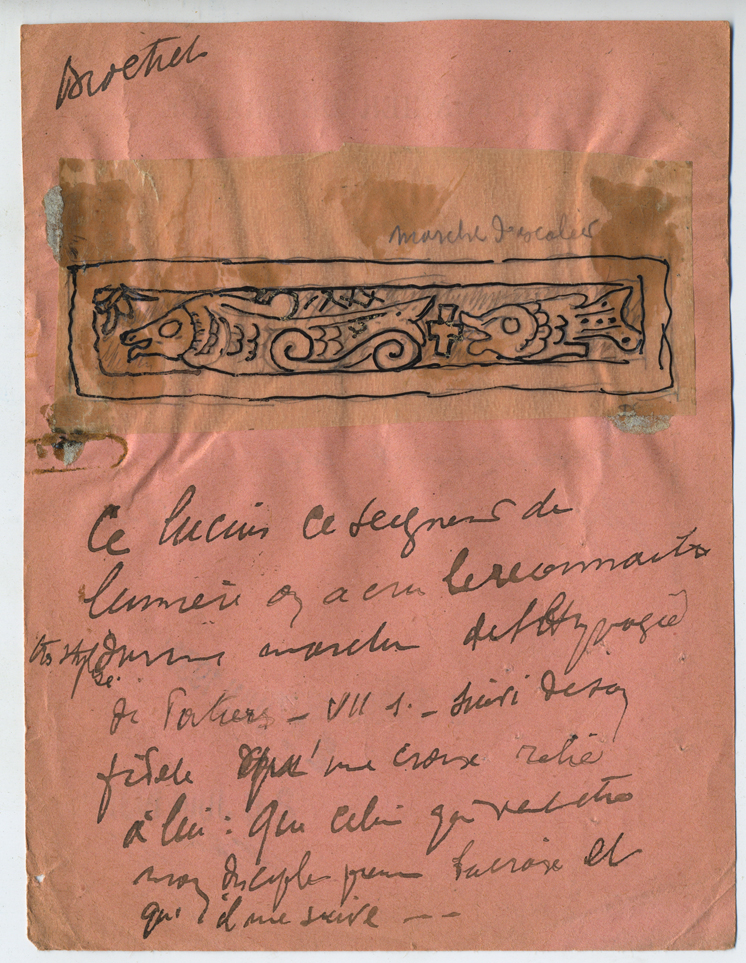 Brochet
marche d'escalier
Ce lucius ce seigneur de
lumière on a cru le reconnaitre
très stylisé sur une marche de l'Hypogée
de Poitiers – VII s. – suivi de son
fidèle qu'une croix relie
à lui : Que celui qui veut être
mon disciple prenne sa croix et
qu'il me suive – –